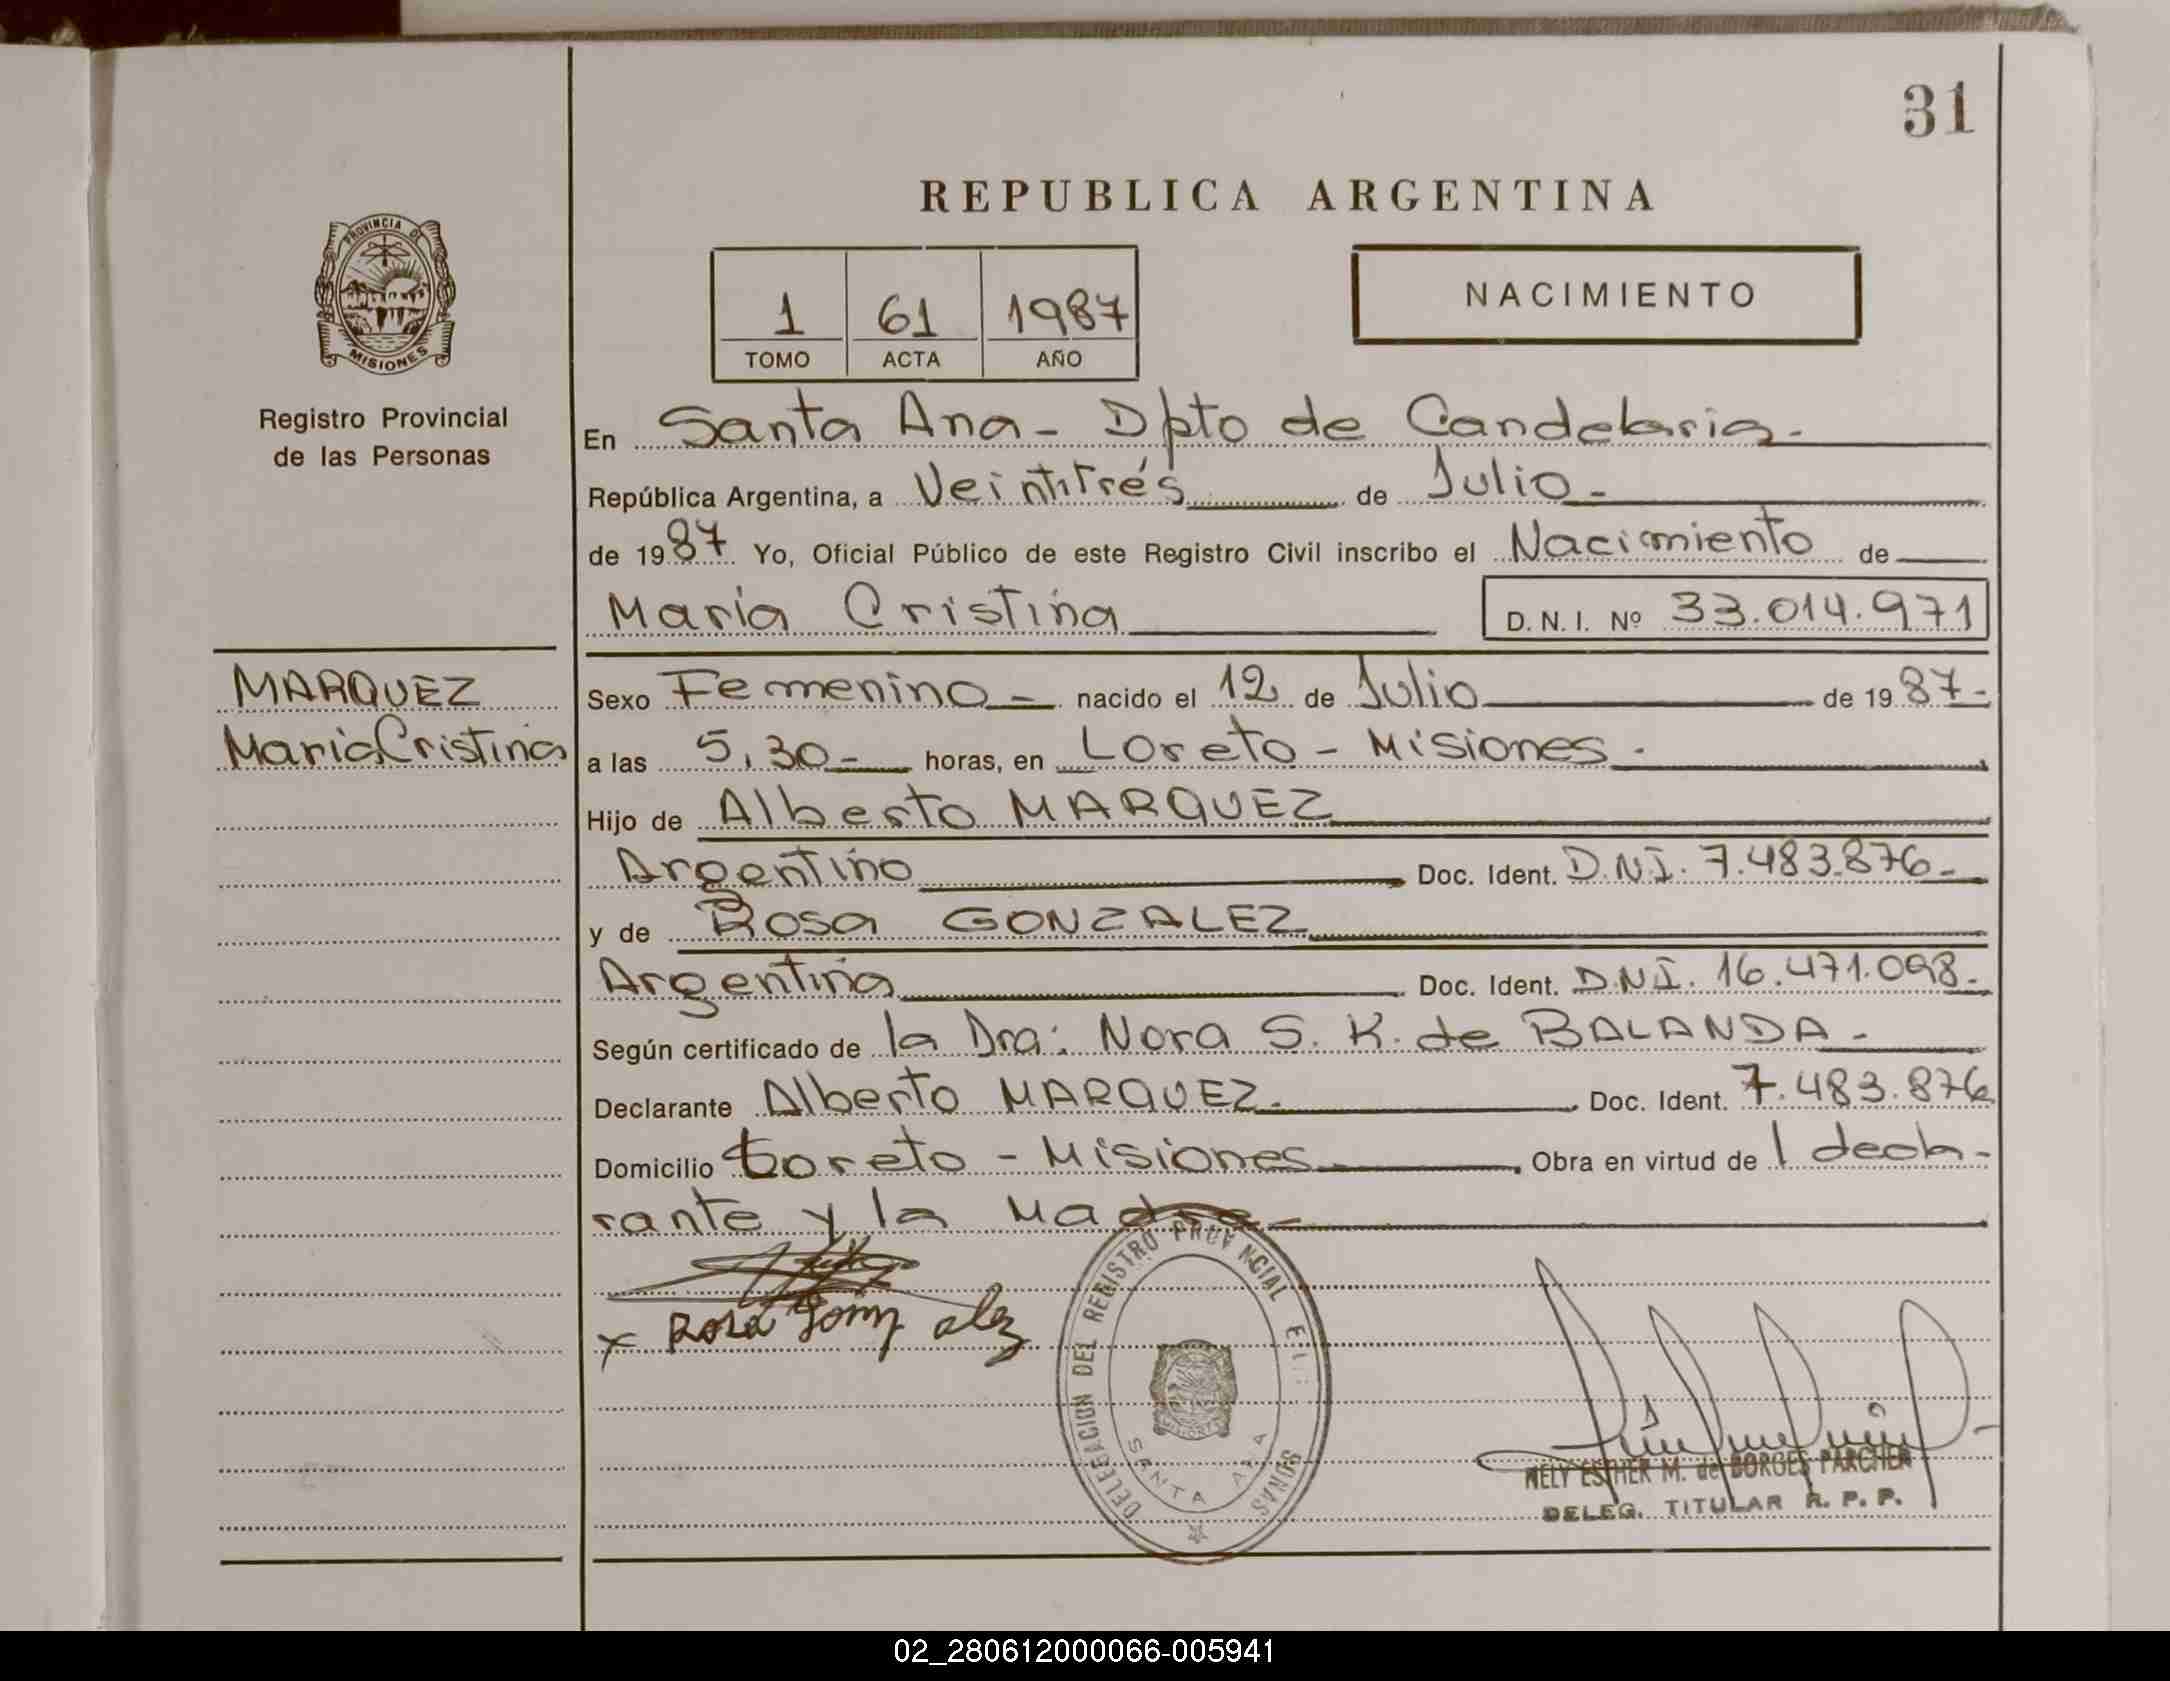 31
REPUBLICA ARGENTINA
PROVINCIA DE
MISIONES
Registro Provincial
de las Personas
1 61 1987
TOMO ACTA AÑO
NACIMIENTO
En Santa Ana - Dpto de Candelaria -
República Argentina, a Veintitrés de Julio -
de 1987 Yo, Oficial Público de este Registro Civil inscribo el Nacimiento de
María Cristina D. N. I. Nº 33.014.971
MARQUEZ
María Cristina
Sexo Femenino - nacido el 12 de Julio de 1987 -
a las 5,30 - horas, en Loreto - Misiones -
Hijo de Alberto MARQUEZ
Argentino Doc. Ident. D.N.I. 7.483.876 -
y de Rosa GONZALEZ
Argentina Doc. Ident. D.N.I. 16.471.098 -
Según certificado de la Dra: Nora S. K. de BALANDA -
Declarante Alberto MARQUEZ. Doc. Ident. 7.483.876
Domicilio Loreto - Misiones Obra en virtud de l decla-
rante y la Madre -
x Rosa Gonz alez
DELEGACION DEL REGISTRO PROVINCIAL
SANTA ANA
NELY ESTHER M. de BORGES PARCHER
DELEG. TITULAR R. P. P.
02_280612000066-005941